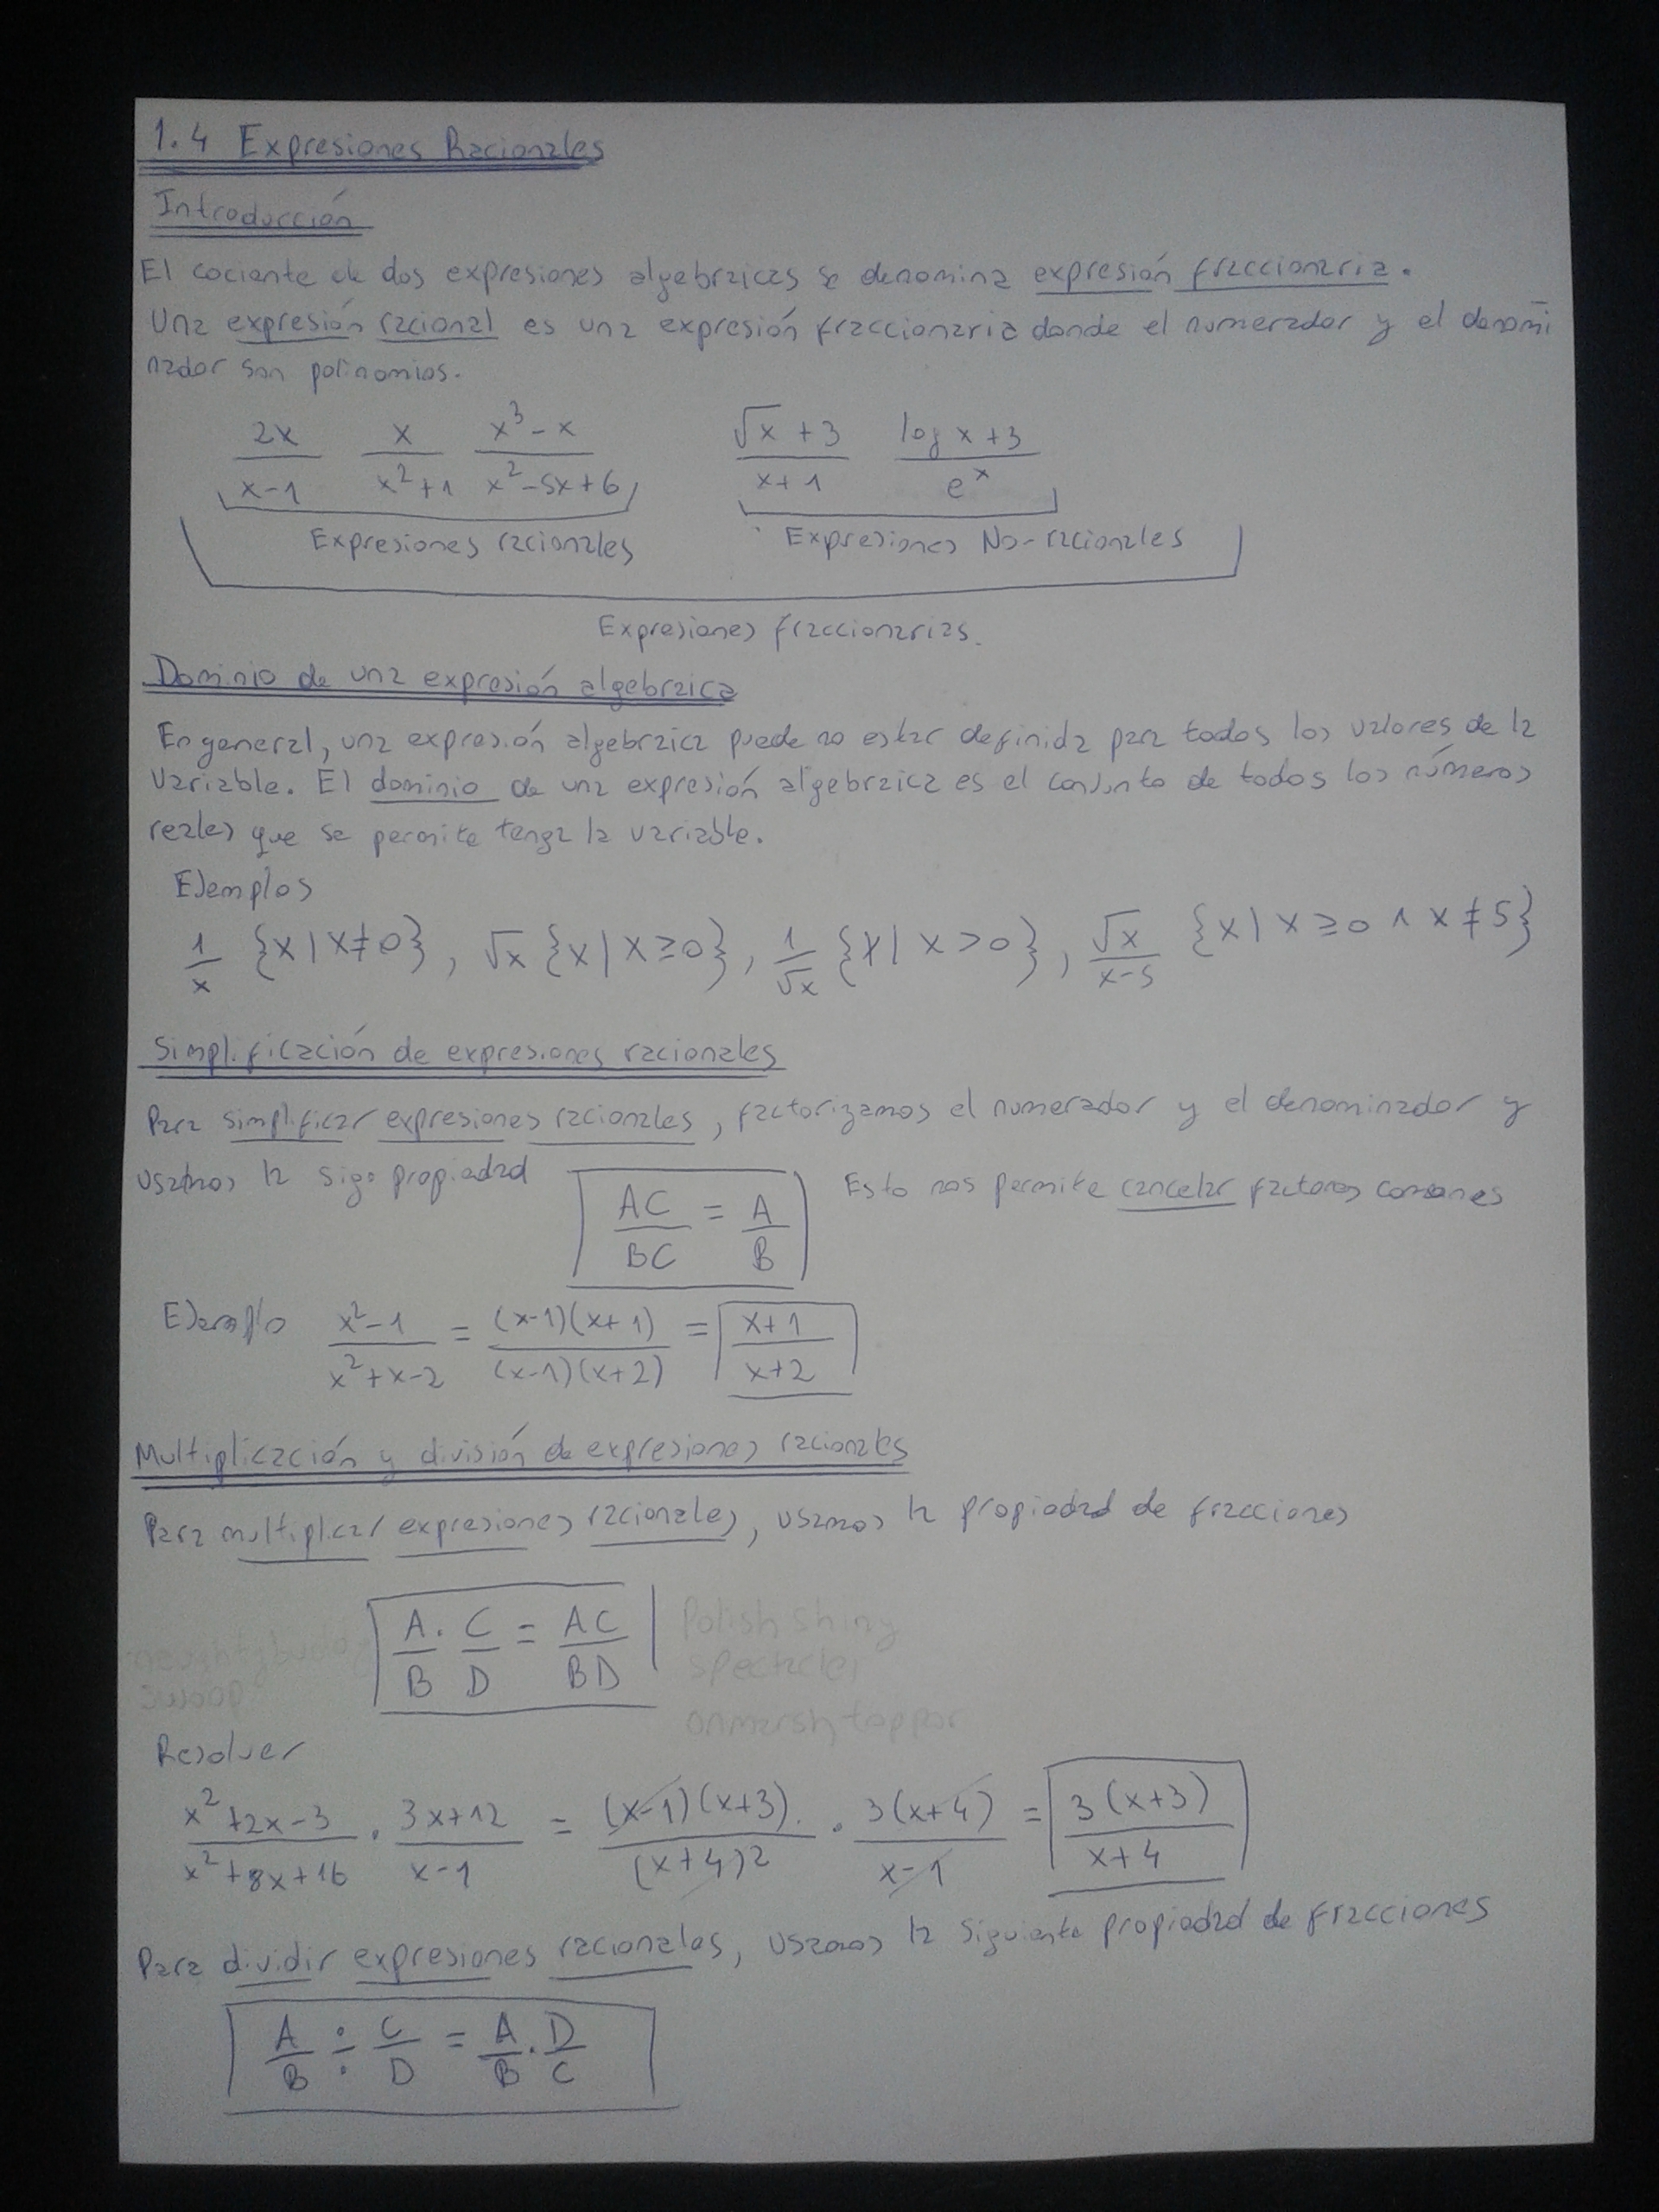 1.4 Expresiones Racionales
Introducción
El cociente de dos expresiones algebraicas se denomina expresión fraccionaria.
Una expresión racional es una expresión fraccionaria donde el numerador y el denomi
nador son polinomios.
2x/(x-1) x/(x²+1) (x³-x)/(x²-5x+6) (√x+3)/(x+1) (log x+3)/e^x
Expresiones racionales Expresiones No-racionales
Expresiones fraccionarias.
Dominio de una expresión algebraica
En general, una expresión algebraica puede no estar definida para todos los valores de la
variable. El dominio de una expresión algebraica es el conjunto de todos los números
reales que se permite tenga la variable.
Ejemplos
1/x {x|x≠0}, √x {x|x≥0}, 1/√x {x|x>0}, √x/(x-5) {x|x≥0 ∧ x≠5}
Simplificación de expresiones racionales
Para simplificar expresiones racionales, factorizamos el numerador y el denominador y
usamos la sig. propiedad AC/BC = A/B Esto nos permite cancelar factores comunes
Ejemplo (x²-1)/(x²+x-2) = (x-1)(x+1)/(x-1)(x+2) = (x+1)/(x+2)
Multiplicación y división de expresiones racionales
Para multiplicar expresiones racionales, usamos la propiedad de fracciones
A/B · C/D = AC/BD
Polish shiny
spectacles
swoop
Resolver
(x²+2x-3)/(x²+8x+16) · (3x+12)/(x-1) = (x-1)(x+3)/(x+4)² · 3(x+4)/(x-1) = 3(x+3)/(x+4)
Para dividir expresiones racionales, usamos la siguiente propiedad de fracciones
A/B ÷ C/D = A/B · D/C